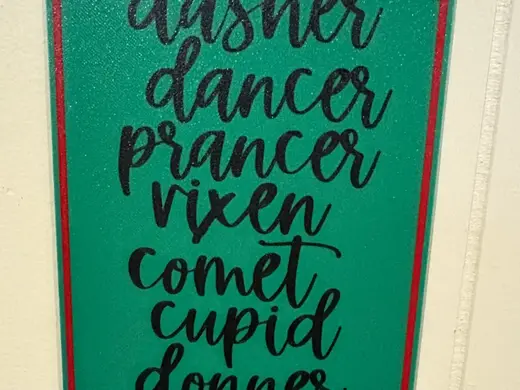 dasher
dancer
prancer
vixen
comet
cupid
donner